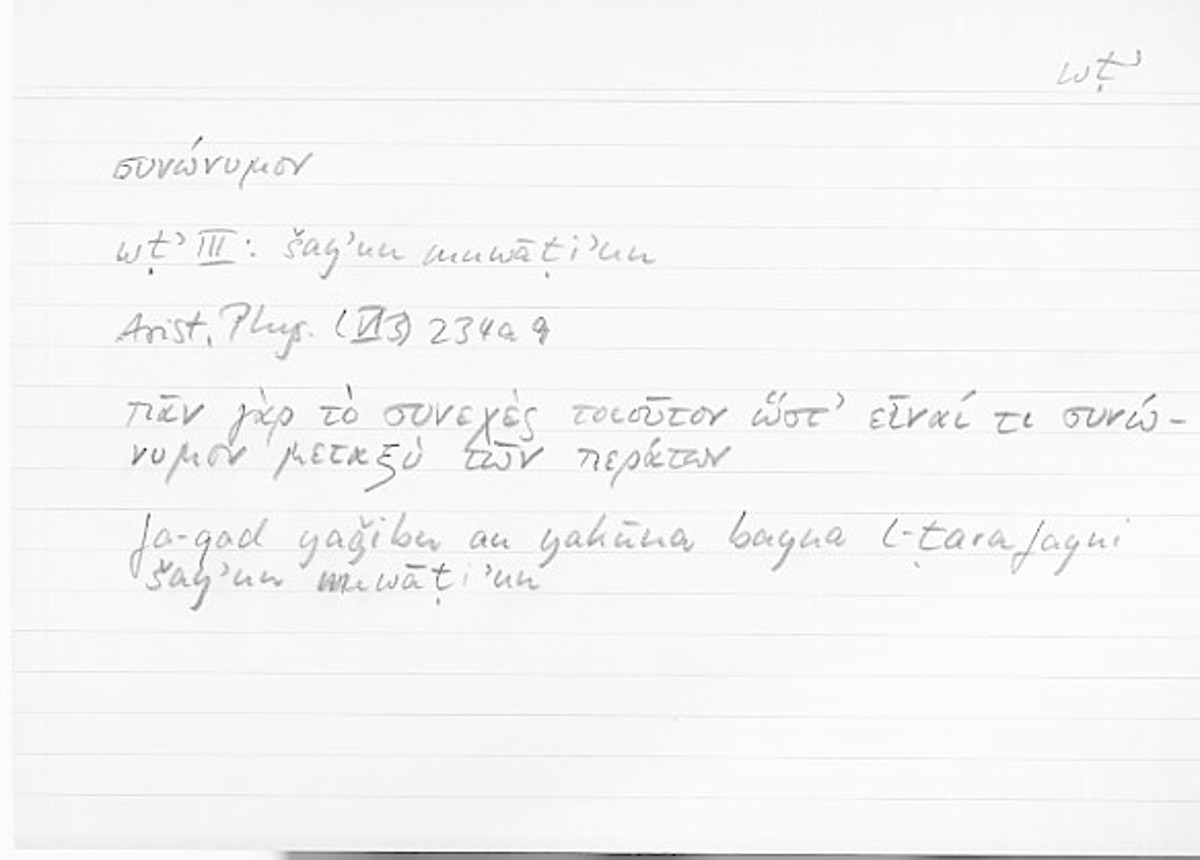 wṭʾ
συνώνυμον
wṭʾ III: šayʾun muwāṭiʾun
Arist. Phys. (VI3) 234a 9
πᾶν γὰρ τὸ συνεχὲς τοιοῦτον ὥστ’ εἶναί τι συνώ-
νυμον μεταξὺ τῶν περάτων
fa-qad yaǧibu an yakūna bayna l-ṭarafayni
šayʾun muwāṭiʾun